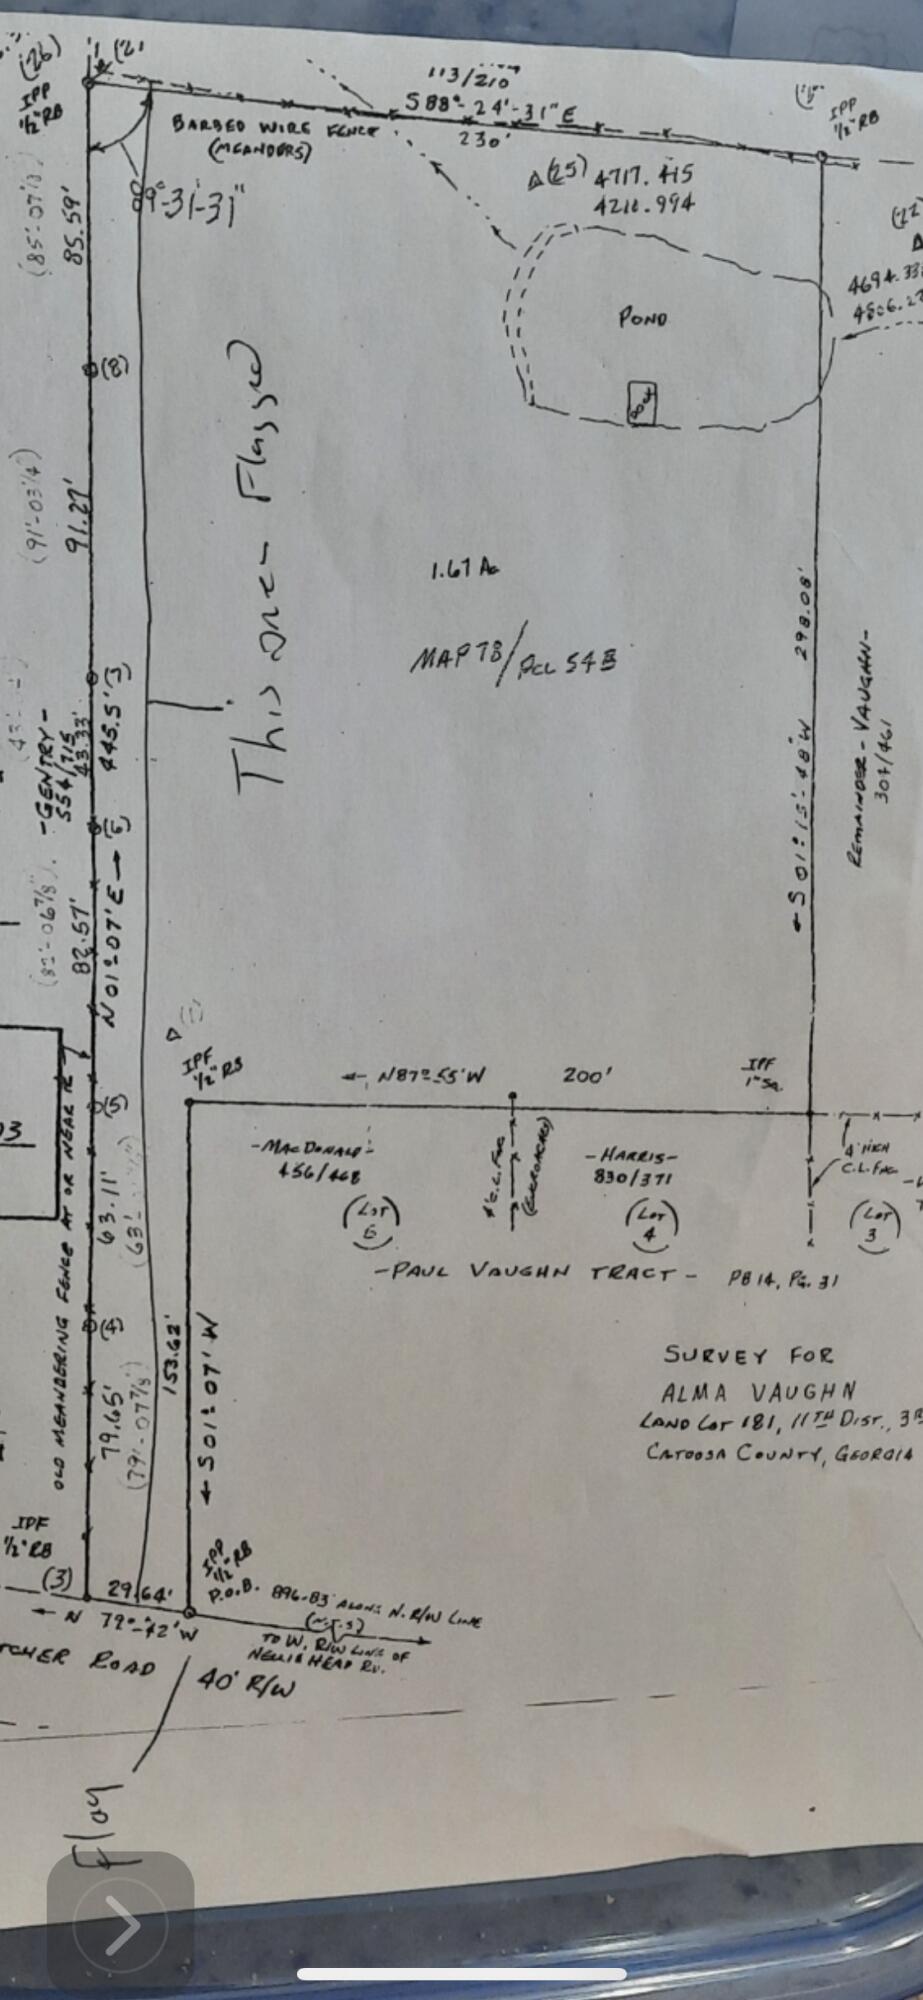 (26)
IPP
1/2" RB
113/210
S 88°-24'-31" E
230'
BARBED WIRE FENCE
(MEANDERS)
IPP
1/2" RB
89°-31'-31"
(25) 4717.415
POND
DOCK
(85'-07 1/8)
85.59'
(8)
(91'-03 1/4)
91.27'
This one - Flagged
1.67 Ac
MAP 78/PCL 54B
S 01°-15'-48" W 298.08'
REMAINDER - VAUGHN -
307/461
- GENTRY -
554/715
43.33'
445.5'
N 01°-07' E
(82'-06 7/8)
82.57'
OLD MEANDERING FENCE AT OR NEAR
(5)
63.11'
(4)
79.65'
(79'-07 7/8)
IPF
1/2" RB
N 87°-55' W
200'
IPF
1" SQ.
- MACDONALD -
456/468
(ENCROACHES)
- HARRIS -
830/371
4' HIGH
C.L. FNC
LOT
LOT
4
LOT
3
- PAUL VAUGHN TRACT - PB 14, PG. 31
153.62'
S 01°-07' W
SURVEY FOR
ALMA VAUGHN
LAND LOT 181, 11TH DIST.,
CATOOSA COUNTY, GEORGIA
IPF
1/2" RB
(3)
29.64'
N 79°-42' W
IPP
1/2" RB
P.O.B.
896.83' ALONG N. R/W LINE
(N.T.S)
TO W. R/W LINE OF
NELLIE HEAD RD.
TCHER ROAD
40' R/W
Flag